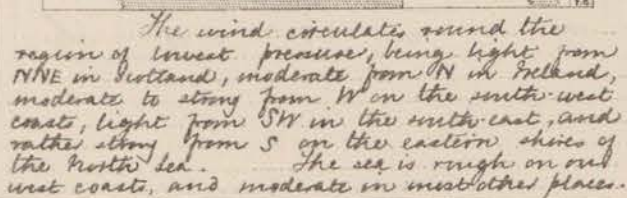 The wind circulates round the
region of lowest pressure, being light from
NNE in Scotland, moderate from N in Ireland,
moderate to strong from W on the south-west
coasts, light from SW in the south-east, and
rather strong from S on the eastern shores of
the North Sea. The sea is rough on our
west coasts, and moderate in most other places.